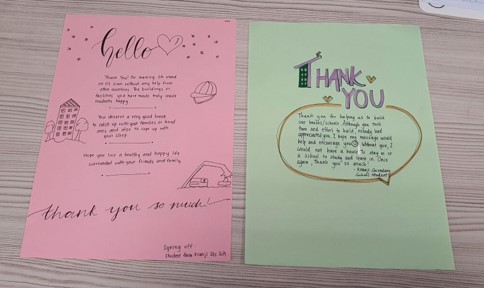 hello
"Thank You" for making life easier
on it's own without any help from
other countries. The buildings or
facilities you have made truly make
students happy.
You deserve a very good break
to catch up with your families or friend
enjoy good show to cope up with
your sleep.
Hope you live a healthy and happy life
surrounded with your friends and family.
thank you so much!
Signing off:
Student from Kranji Sec Sch
THANK
YOU
Thank you for helping us to build
our houses/schools. Although you took
time and effort to build, nobody had
appreciated you. I hope my message would
help and encourage you. Without you, I
would not have a house to stay in or
a school to study and learn in. Once
again, thank you so much!
- Kranji Secondary
School student